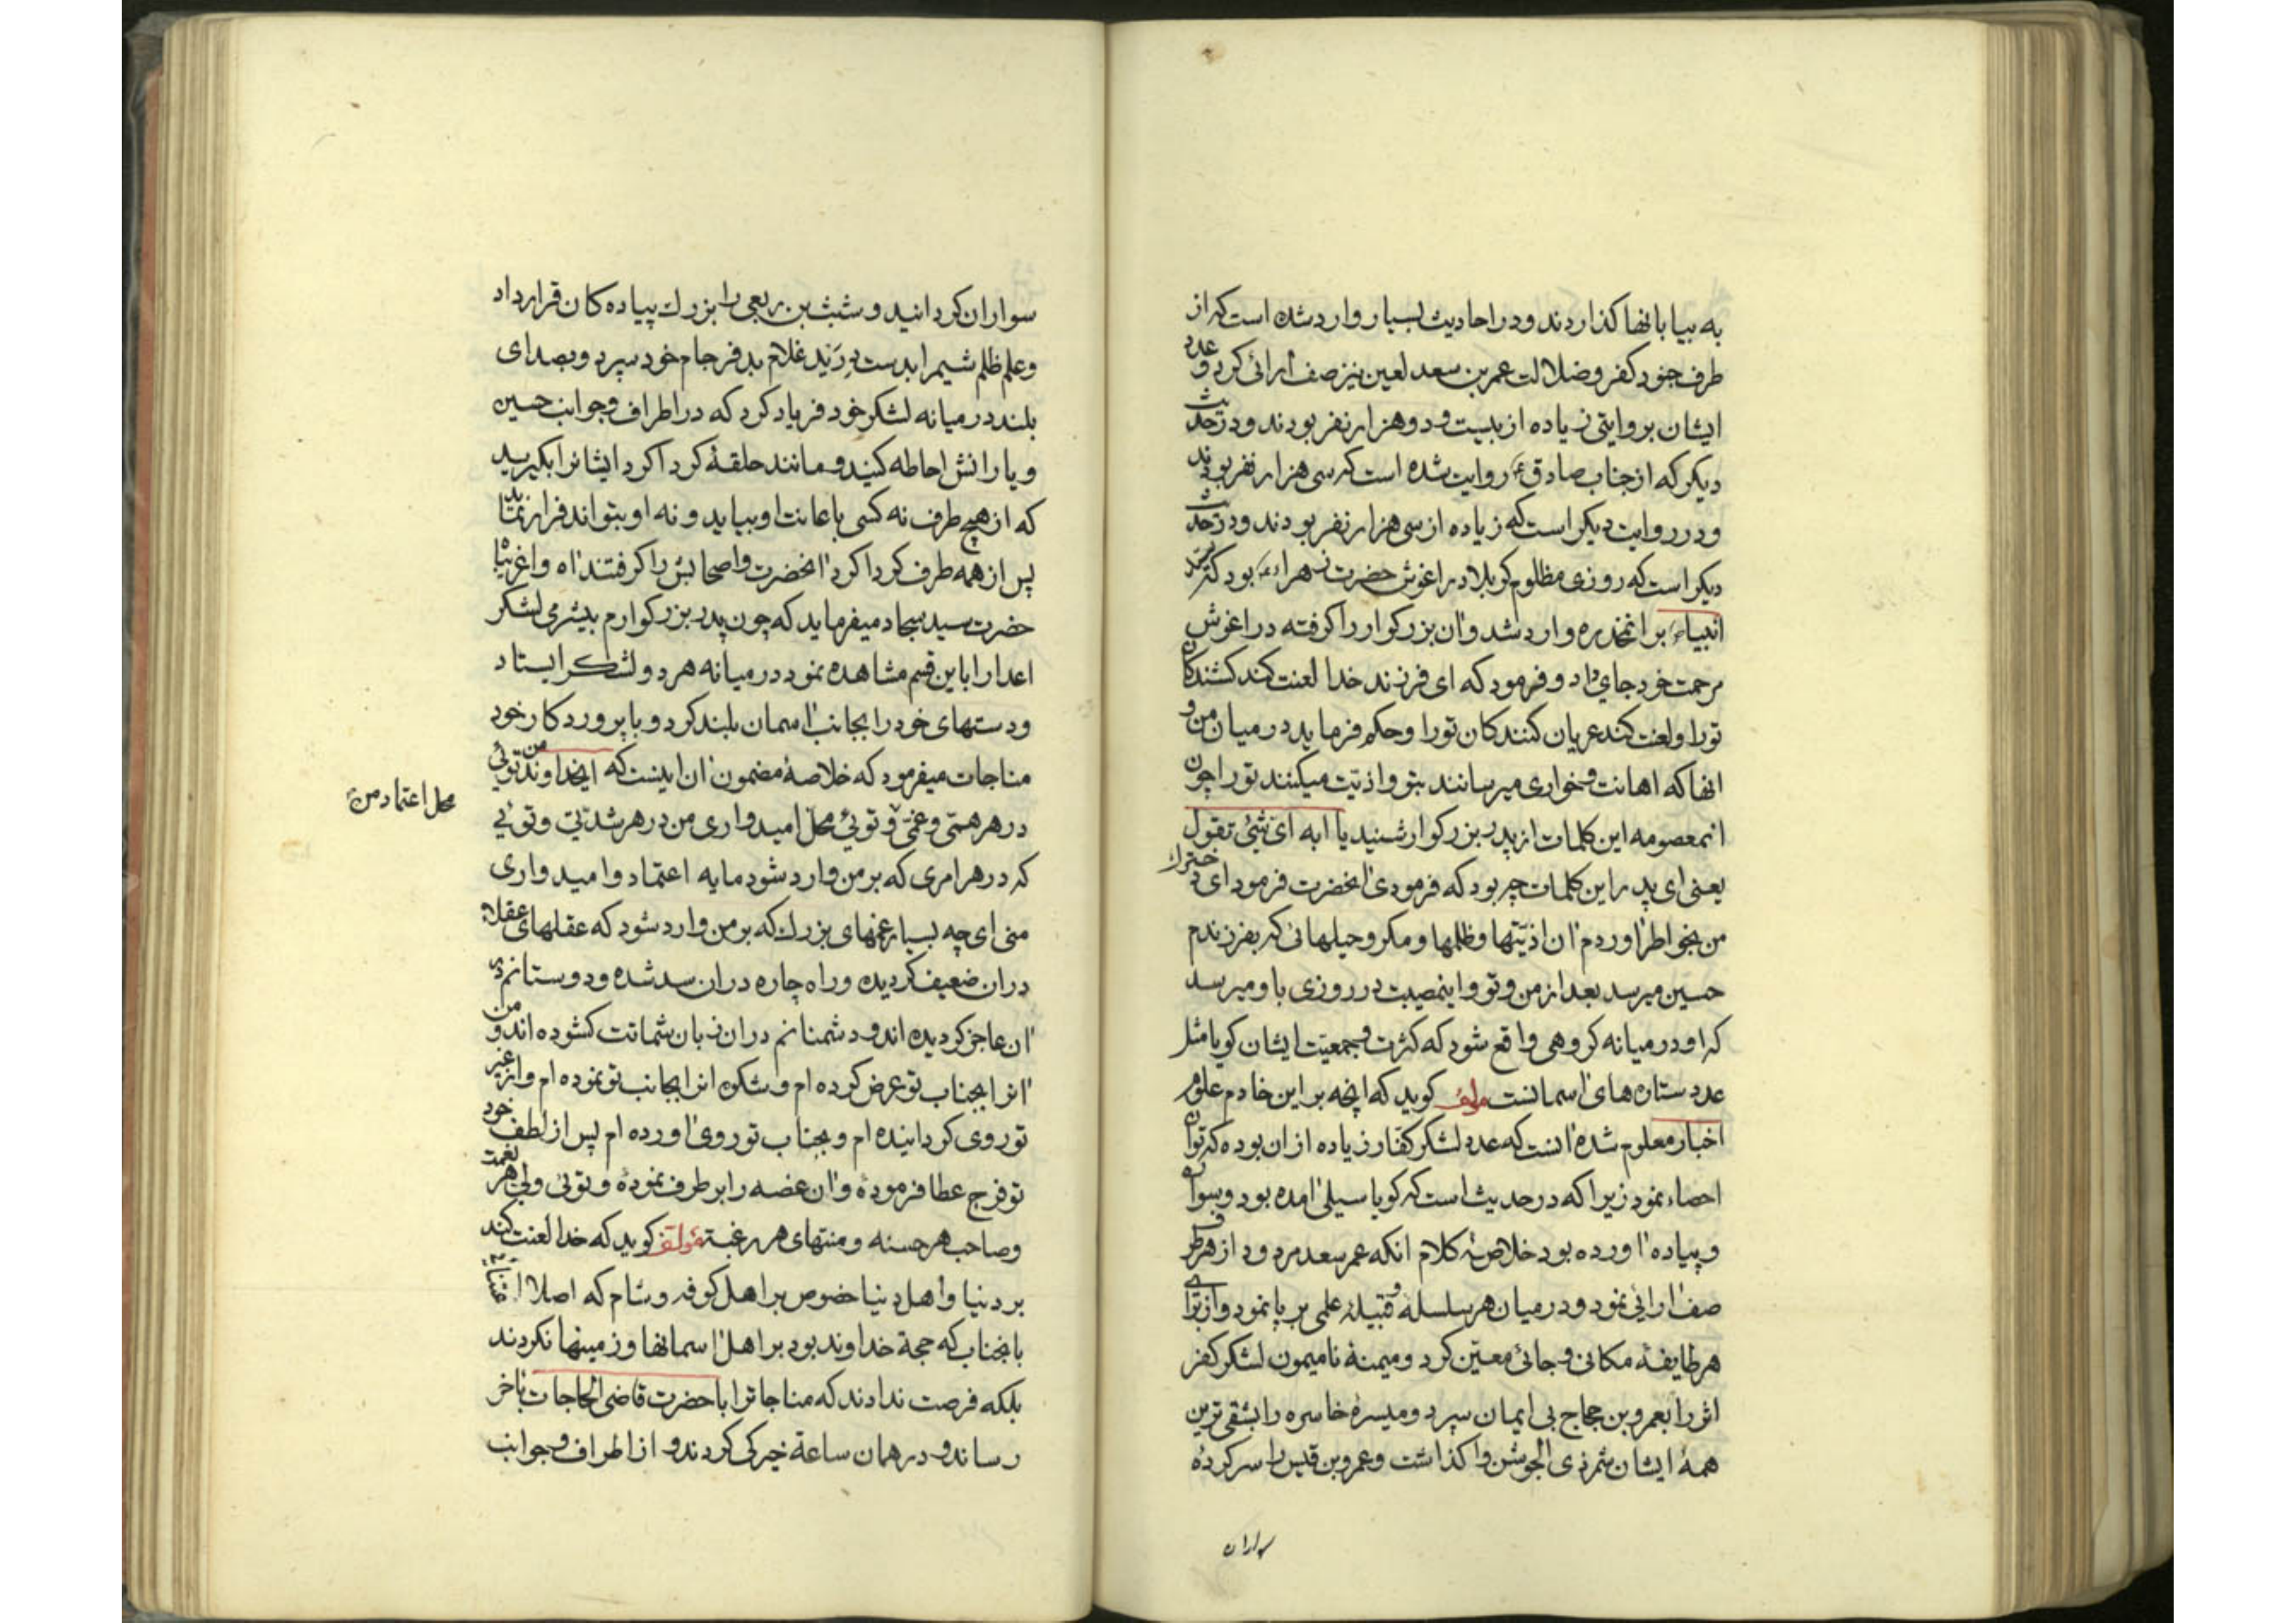 به بیابانها کذاردند و در احادیث بسیار وارد شده است که از
طرف جنود کفر و ضلالت عمر بن سعد لعین نیز صف ارائی کرد و عدد
ایشان بروایتی زیاده از بیست و دو هزار نفر بودند و در حدیث
دیکر که از جناب صادق ع روایت شده است که سی هزار نفر بودند
و در روایت دیکر است که زیاده از سی هزار نفر بودند و در حدیث
دیکر است که روزی مظلوم کربلا در اغوش حضرت زهراء بود که
انبیاء بر انمخدره وارد شد و ان بزرکوار را کرفته در اغوش
مرحمت خود جای داد و فرمود که ای فرزند خدا لعنت کند کشندکان
تو را و لعنت کند عریان کنندکان تو را و حکم فرماید در میان من و
انها که اهانت و خواری میرسانند بتو و اذیّت میکنند تو را چون
انمعصومه این کلمات از پدر بزرکوار شنید یا ابه ای شئ تقول
یعنی ای پدر این کلمات چه بود که فرمودی انحضرت فرمود ای دخترک
من بخواطر اوردم ان اذیّتها و ظلمها و مکر و حیلهائی که بفرزندم
حسین میرسد بعد از من و تو و اینمصیبت در روزی باو میرسد
که او در میانه کروهی واقع شود که کثرت و جمعیّت ایشان کویا مثل
عدد ستاره های اسمانست مولف کوید که انچه بر این خادم علوم
اخبار معلوم شده انست که عدد لشکر کفار زیاده از ان بوده که توان
احصاء نمود زیرا که در حدیث است که کویا سیلی امده بود و سواره
و پیاده اورده بود خلاصهٔ کلام انکه عمر سعد مردود از هر طرف
صف ارائی نمود و در میان هر سلسله و قبیله علمی بر پا نمود و از برای
هر طایفهٔ مکانی و جائی معیّن کرد و میمنهٔ نامیمون لشکر کفر
اثر را بعمرو بن حجاج بی ایمان سپرد و میسرهٔ خاسره را بشقی ترین
همهٔ ایشان شمر ذی الجوشن واکذاشت و عمرو بن قیس را سرکردهٔ
سواران
سواران کردانید و شبث بن ربعی را بزرك پیاده کان قرار داد
و علم ظلم شیم را بدست دُرَید غلام بدفرجام خود سپرد و بصدای
بلند در میانه لشکر خود فریاد کرد که در اطراف و جوانب حسین
و یارانش احاطه کنید و مانند حلقهٔ کرداکرد ایشانرا بکیرید
که از هیچ طرف نه کسی باعانت او بیاید و نه او بتواند فرار نماید
پس از همه طرف کرداکرد انحضرت و اصحابش را کرفتند اه واغربتاه
حضرت سید سجاد میفرماید که چون پدر بزرکوارم بیشرمی لشکر
اعدا را باین قسم مشاهده نمود در میانه هر دو لشکر ایستاد
و دستهای خود را بجانب اسمان بلند کرد و با پروردکار خود
مناجات میفرمود که خلاصهٔ مضمون ان اینست که ایخداوند من توئی
محل اعتماد من
در هر همّی و غمّی و توئی محلّ امیدواری من در هر شدّتی و توئی
که در هر امری که بر من وارد شود مایه اعتماد و امیدواری
منی ای چه بسیار غمهای بزرك که بر من وارد شود که عقلهای عقلاء
در ان ضعیف کردیده و راه چاره در ان سد شده و دوستانم در
ان عاجز کردیده اند و دشمنانم در ان زبان شماتت کشوده اند و من
انرا بجناب تو عرض کرده ام و شکوه انرا بجانب تو نموده ام و از غیر
تو روی کردانیده ام و بجناب تو روی اورده ام پس از لطف خود
تو فرج عطا فرمودهٔ و ان غصه را بر طرف نمودهٔ و توئی ولی هر نعمت
و صاحب هر حسنه و منتهای هر رغبة مؤلف کوید که خدا لعنت کند
بر دنیا و اهل دنیا خصوص بر اهل کوفه و شام که اصلا
بانجناب که حجة خداوند بود بر اهل اسمانها و زمینها نکردند
بلکه فرصت ندادند که مناجاترا با حضرت قاضی الحاجات باخر
رساند و در همان ساعة خیرکی کردند و از اطراف و جوانب